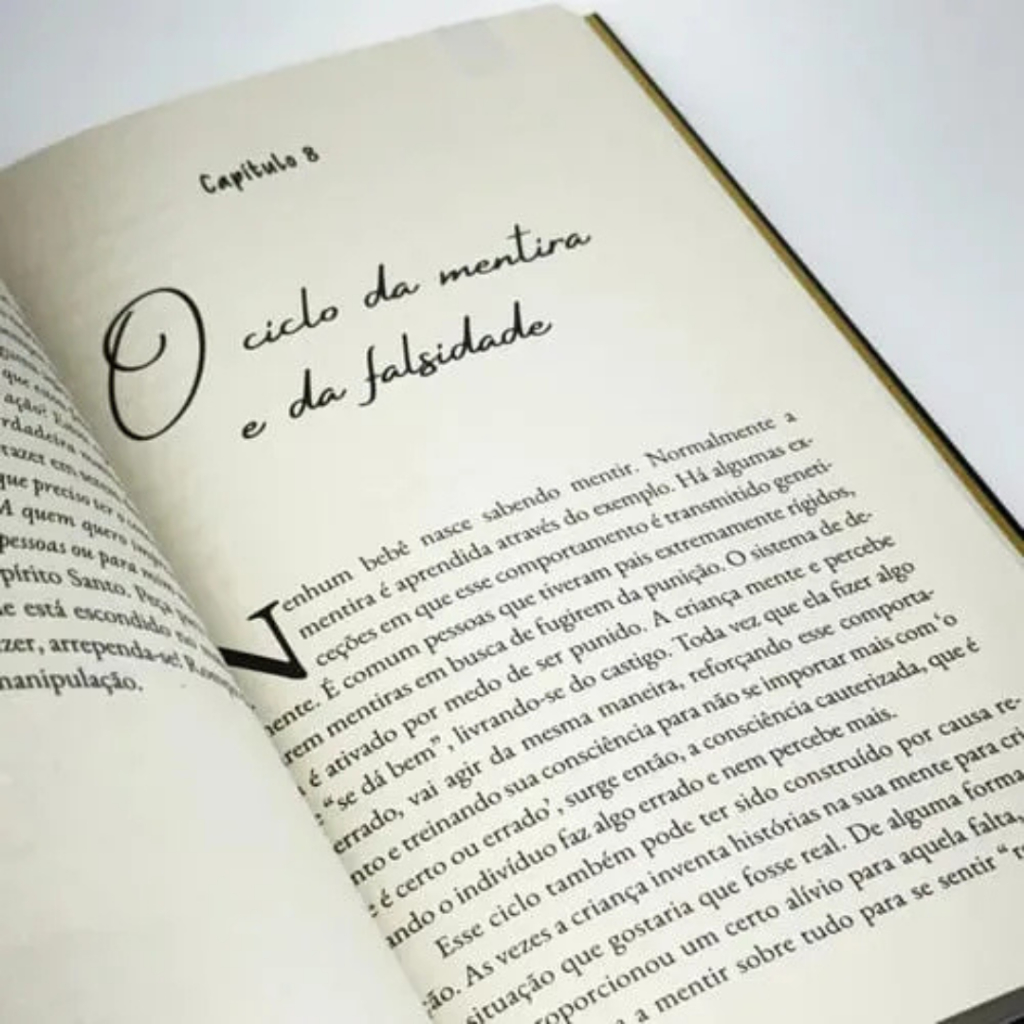 que
ação?
rdadeira
razer em
que preciso ter o
A quem quero
pessoas ou para
pírito Santo. Peça
e está escondido
zer, arrependa-se!
manipulação.
Capítulo 8
O ciclo da mentira
e da falsidade
Nenhum bebê nasce sabendo mentir. Normalmente a
mentira é aprendida através do exemplo. Há algumas ex-
ceções em que esse comportamento é transmitido geneti-
mente. É comum pessoas que tiveram pais extremamente rígidos,
rem mentiras em busca de fugirem da punição. O sistema de de-
é ativado por medo de ser punido. A criança mente e percebe
"se dá bem", livrando-se do castigo. Toda vez que ela fizer algo
errado, vai agir da mesma maneira, reforçando esse comporta-
nto e treinando sua consciência para não se importar mais com 'o
e é certo ou errado', surge então, a consciência cauterizada, que é
ando o indivíduo faz algo errado e nem percebe mais.
Esse ciclo também pode ter sido construído por causa re-
ão. As vezes a criança inventa histórias na sua mente para cri
situação que gostaria que fosse real. De alguma forma
oporcionou um certo alívio para aquela falta,
a mentir sobre tudo para se sentir "